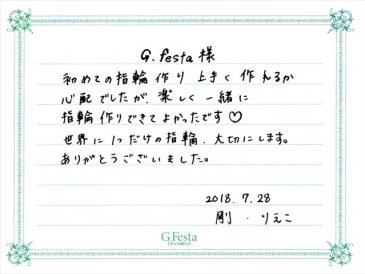 G.festa 様
初めての指輪作り 上手く作れるか
心配でしたが、楽しく一緒に
指輪作りできてよかったです♡
世界に1つだけの指輪、大切にします。
ありがとうございました。
2018.7.28
剛・りえこ
G.Festa
DIAMOND